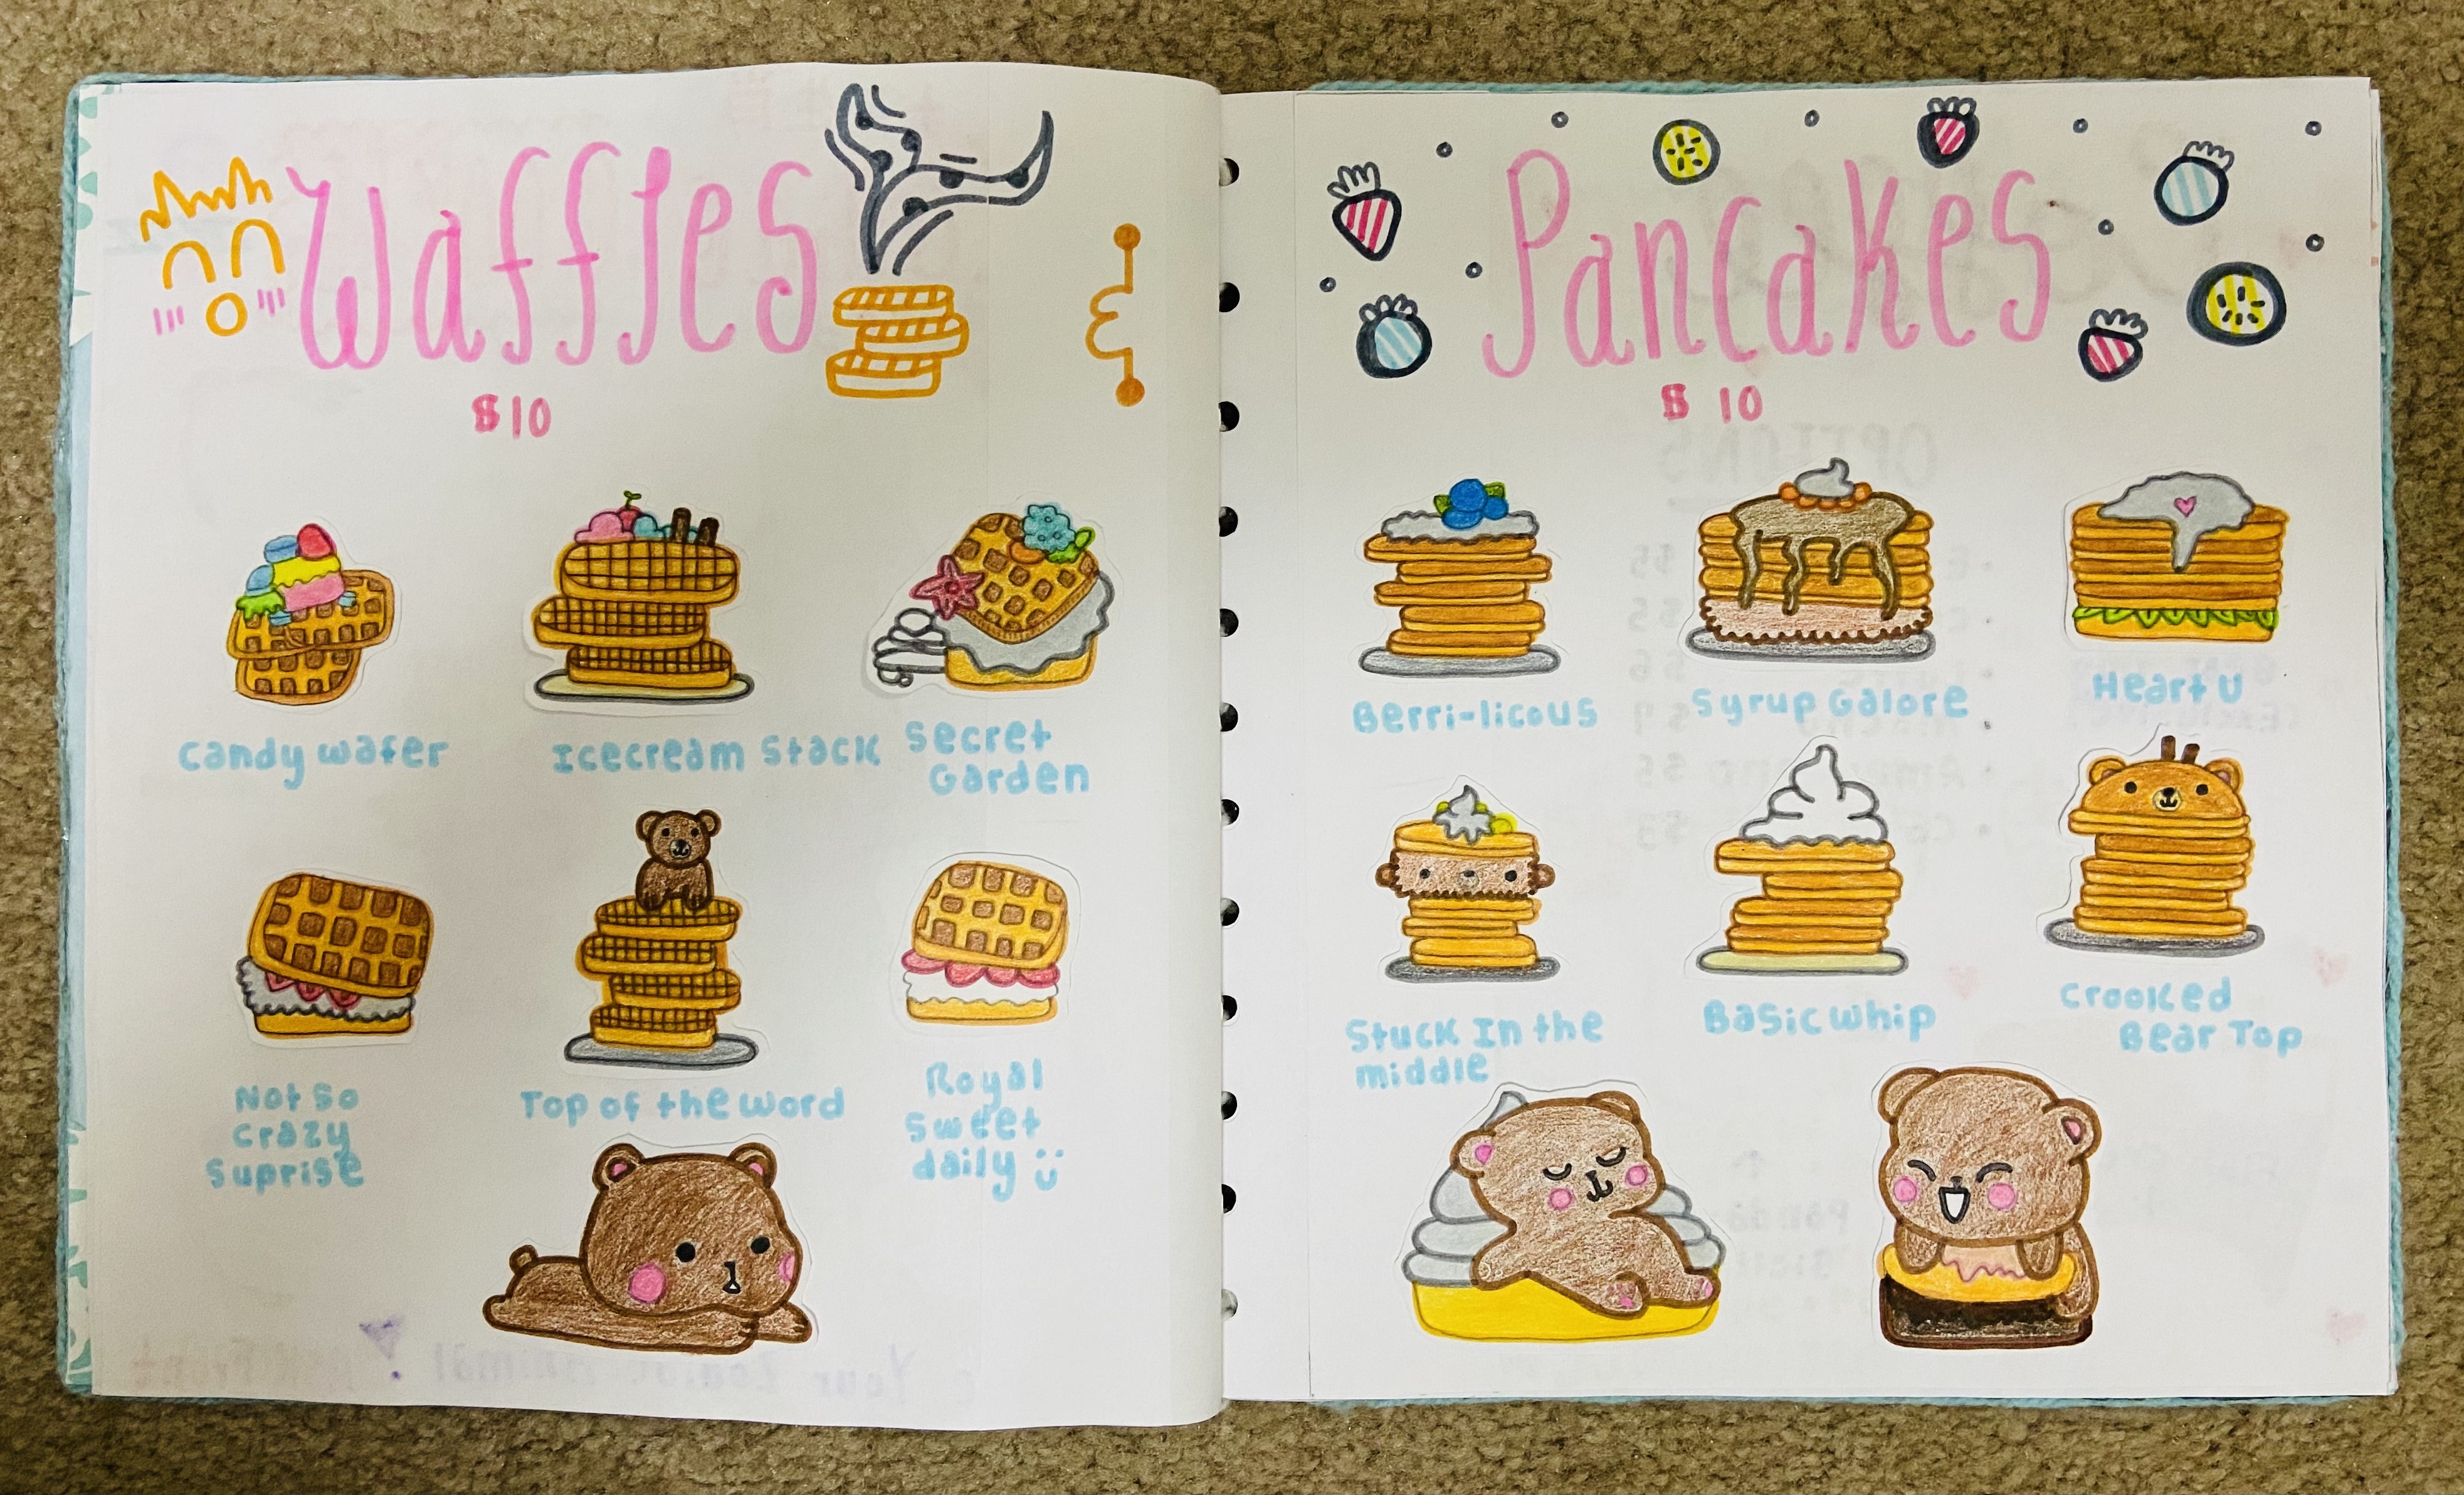 Waffles
$10
Candy wafer
Icecream Stack
Secret
Garden
Not So
Crazy
Suprise
Top of the word
Royal
Sweet
daily
Pancakes
$ 10
Berri-licous
Syrup Galore
Heart U
Stuck In the
middle
Basic whip
Crooked
Bear Top